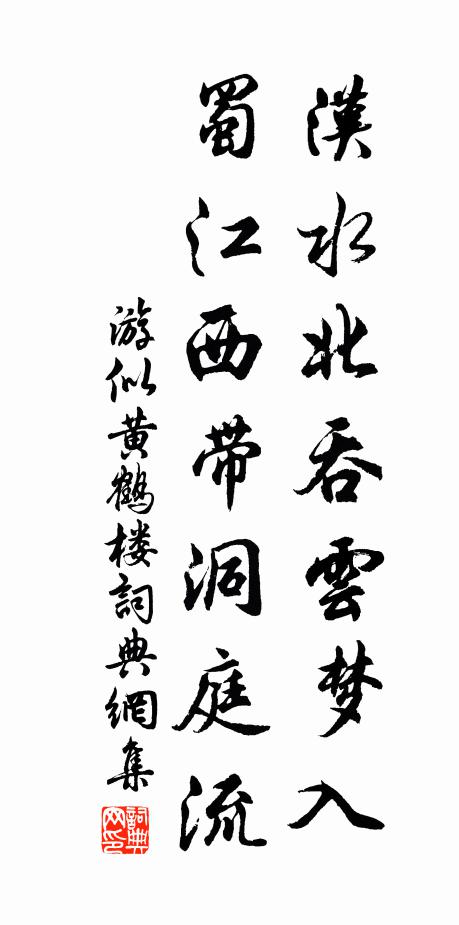 漢水北吞雲梦入
蜀江西带洞庭流
游似黄鶴楼詞典網集
詞典网印